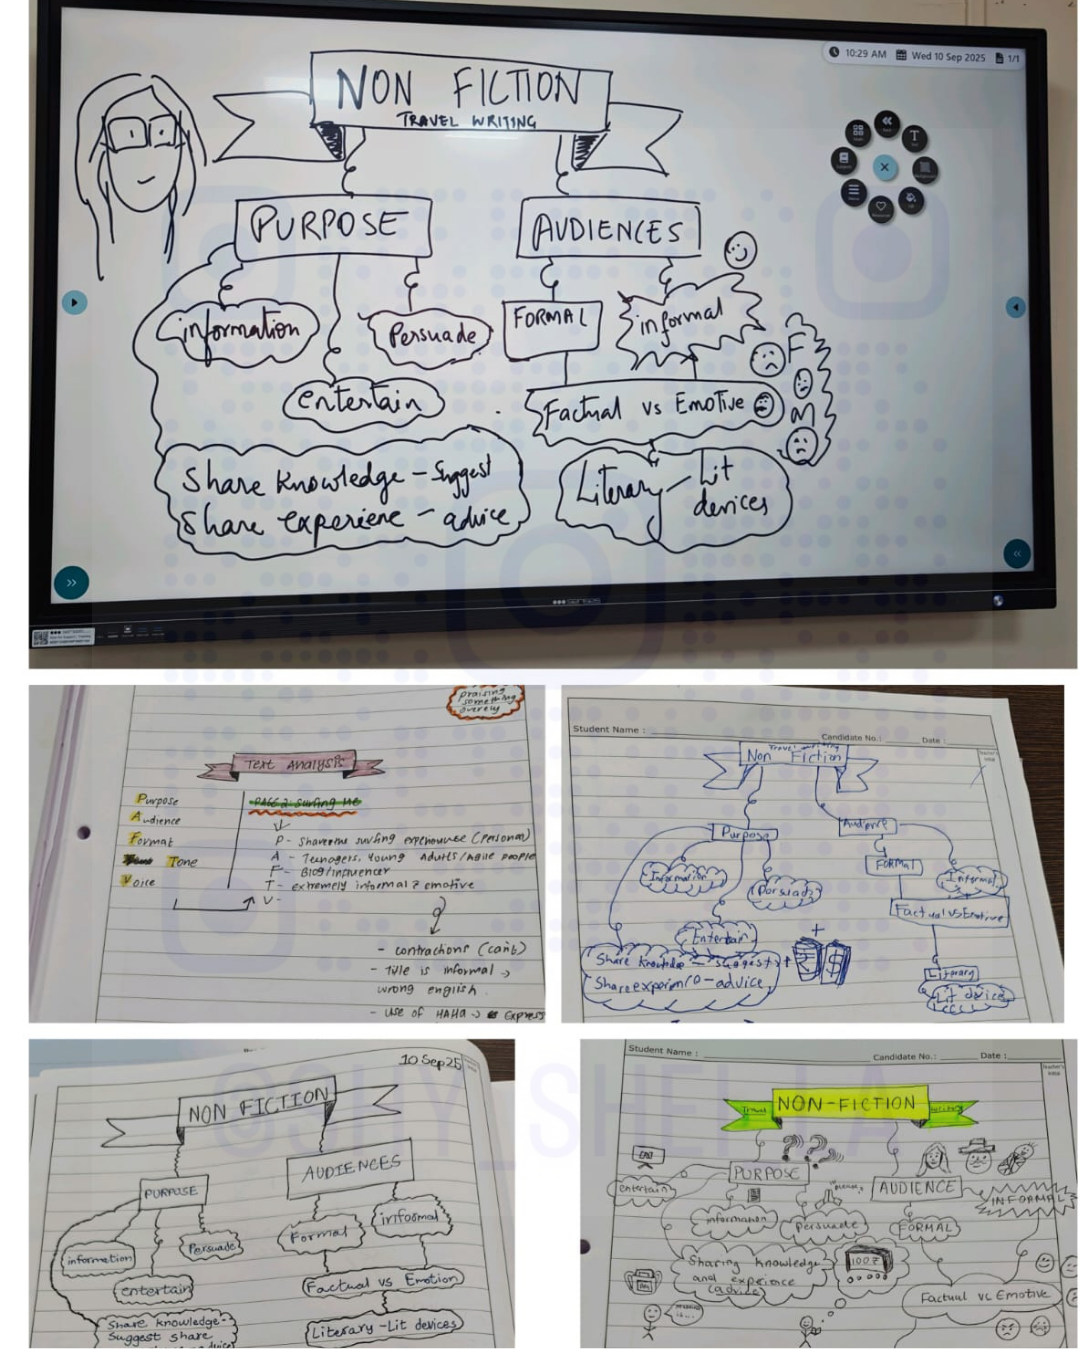 10:29 AM Wed 10 Sep 2025 1/1
NON FICTION
TRAVEL WRITING
PURPOSE
AUDIENCES
information
Persuade
entertain
FORMAL
informal
Factual vs Emotive
F
M
Share knowledge - Suggest
Share experiene - advice
Literary - Lit
devices
praising
something
overely
Text Analysis
Purpose
Audience
Format
Tone
Voice
PAGE 2: Surfing HE
P - Shareing surfing experience (Personal)
A - Teenagers, Young Adults/Agile people
F - Blog/influencer
T - extremely informal & emotive
V -
- contractions (can't)
- Title is informal →
wrong english
- Use of HAHA → Express
Student Name :
Candidate No.:
Date :
Travel writing
Non Fiction
Purpose
Audience
FORMAL
Informal
Information
Persuade
Entertain
Factual vs Emotive
Share knowledge - suggest +
Share experience - advice
Literary
Lit device
10 Sep 25
NON FICTION
PURPOSE
AUDIENCES
information
Persuade
entertain
Formal
informal
Factual vs Emotion
Share knowledge -
Suggest share
Literary - Lit devices
Student Name :
Candidate No.:
Date :
Teacher's
Initial
Travel
NON-FICTION
writing
PURPOSE
AUDIENCE
entertain
information
Persuade
FORMAL
INFORMAL
Sharing knowledge
and experience
(advice)
Factual vs Emotive
@SHY_SHEILLA